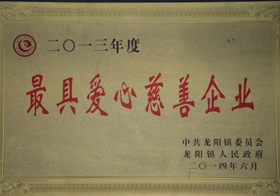 二〇一三年度
最具爱心慈善企业
中共龙阳镇委员会
龙阳镇人民政府
二〇一四年六月